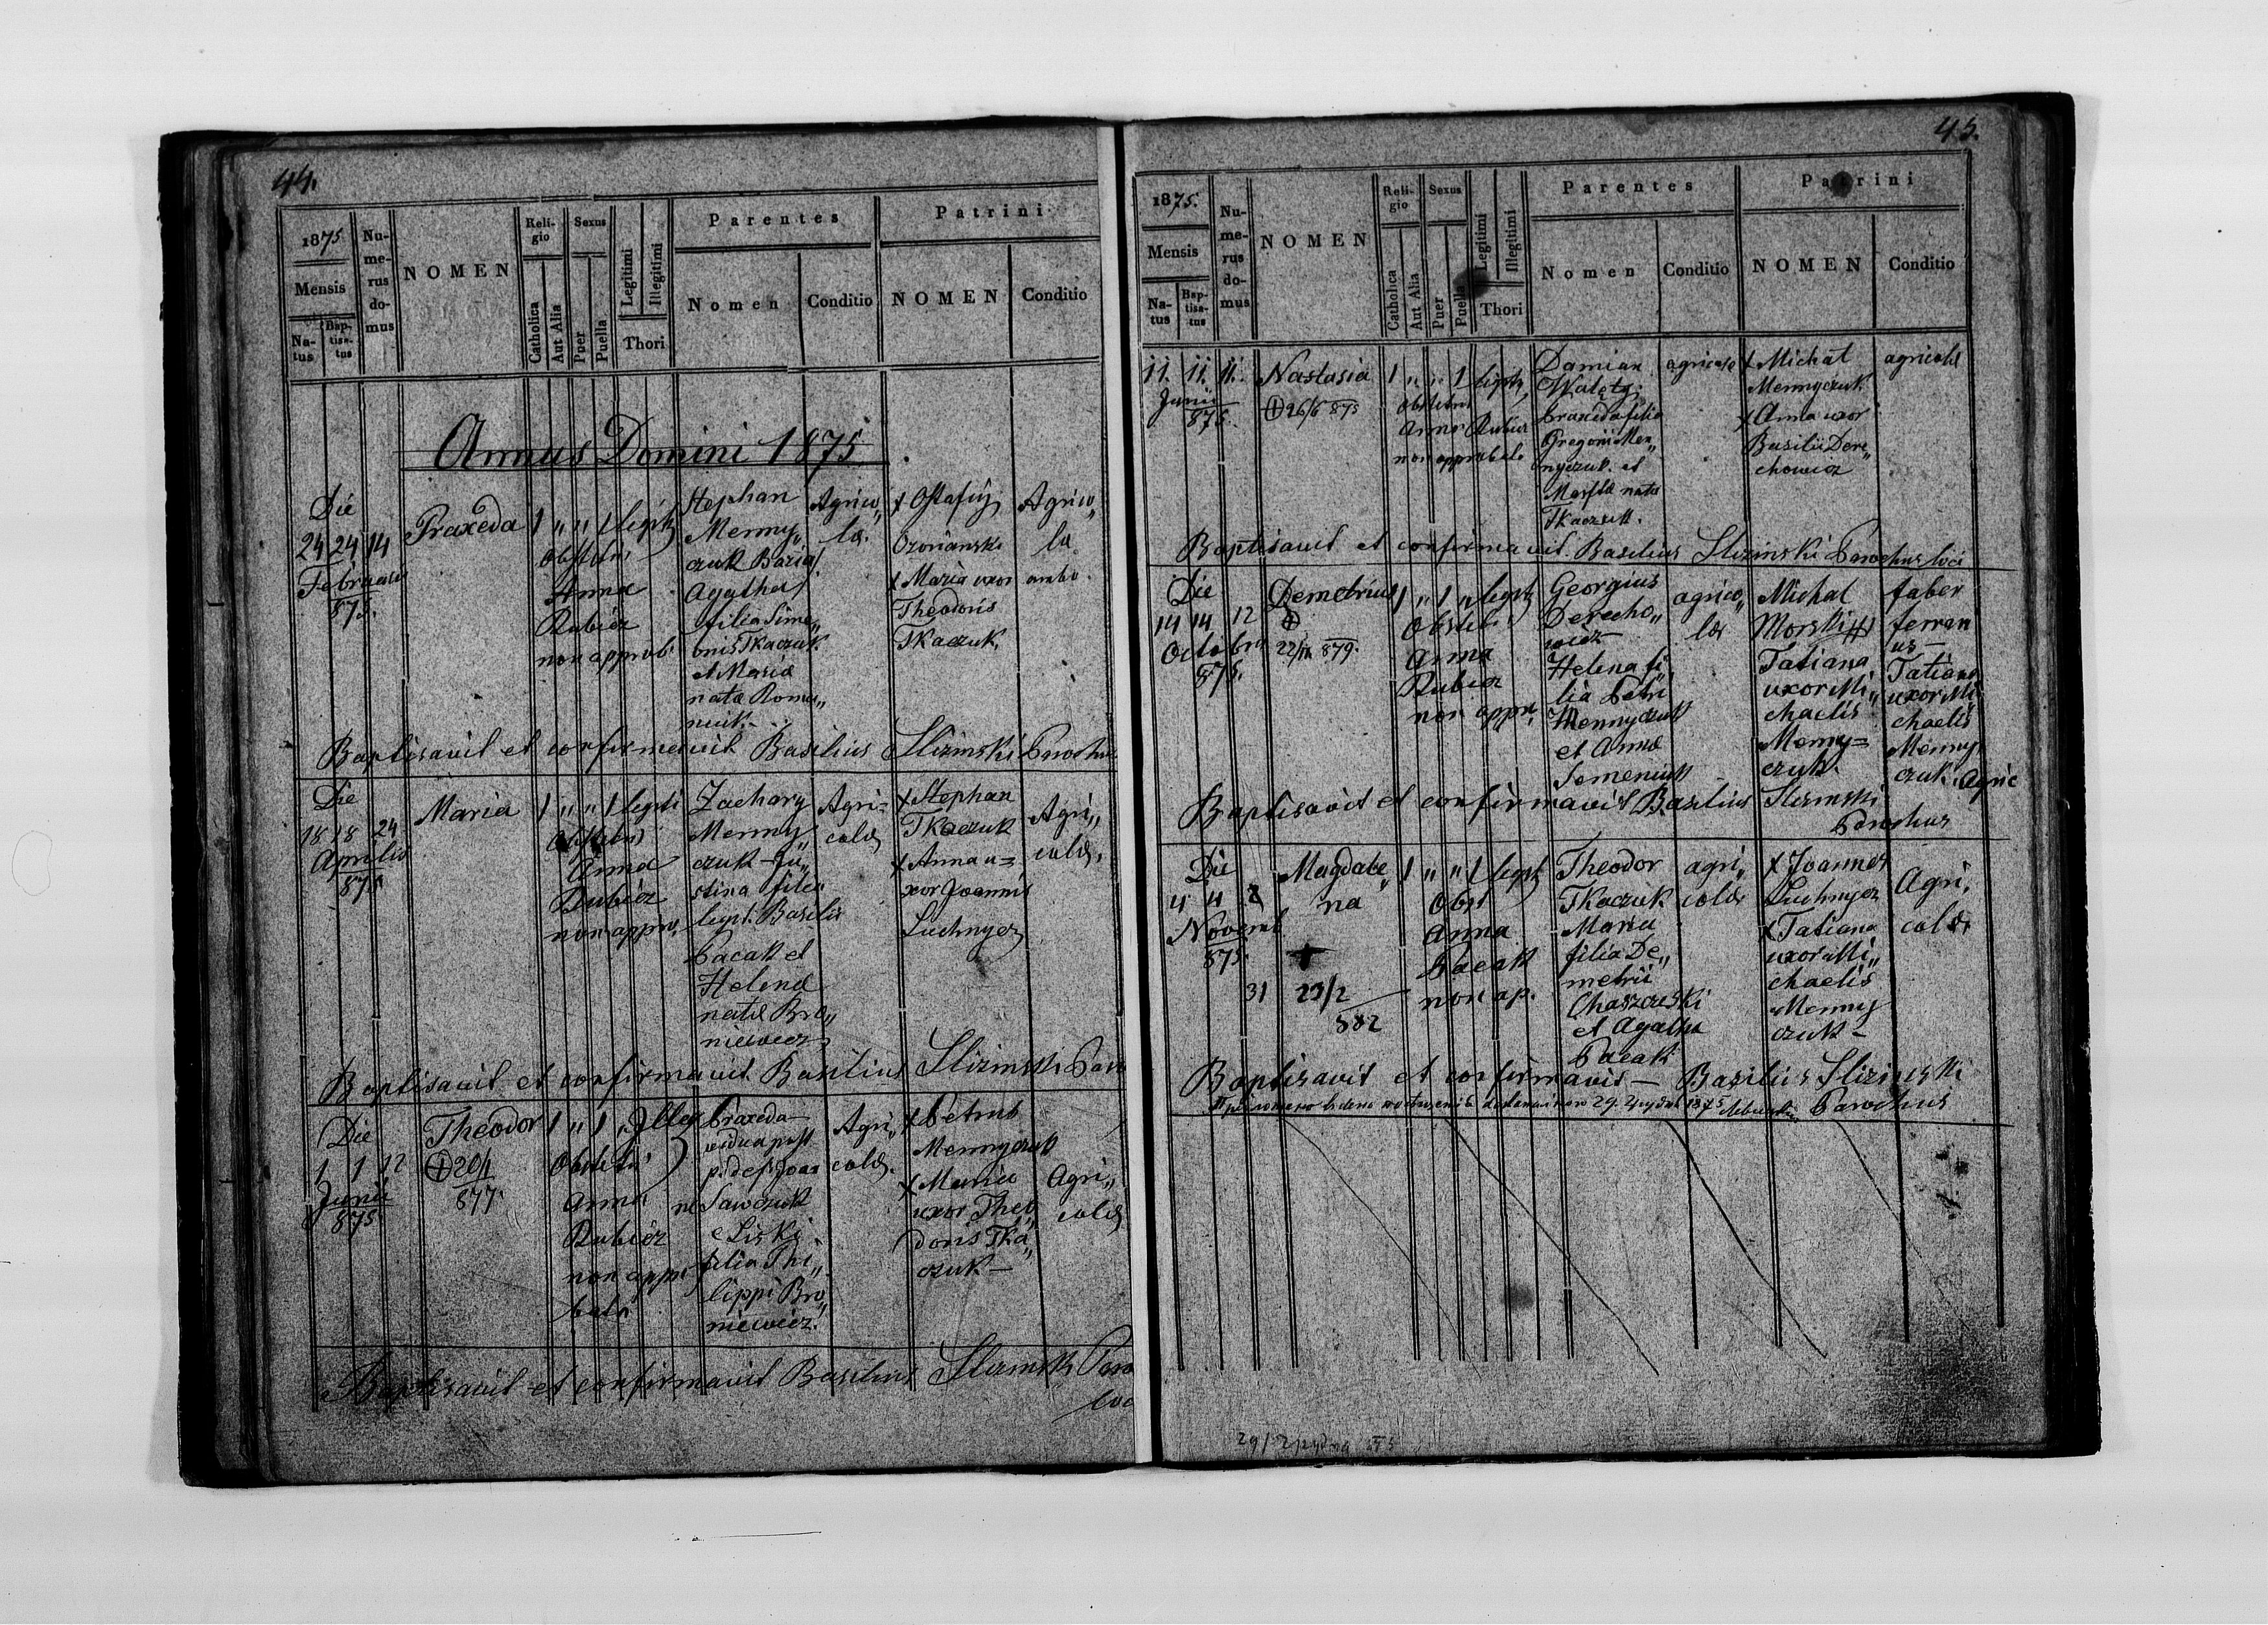 44.
1875
Mensis
Na-
tus
Bap-
tisa-
tus
Nu-
me-
rus
do-
mus
NOMEN
Reli-
gio
Catholica
Aut Alia
Sexus
Puer
Puella
Legitimi
Illegitimi
Thori
Parentes
Nomen
Conditio
Patrini
NOMEN
Conditio
Annus Domini 1875
Die
24 24 14
Februarii
875.
Praxeda
1 " " 1 legit
Obstetri
Anna
Rubicz
non approb
Stephan
Menny"
czuk
Agatha
filia Sime"
onis Tkaczuk
et Maria
nata Roma"
niuk
Agrico"
la.
+ Ostafij
Ozorianski
+ Maria uxor
Theodoris
Tkaczuk
Agrico"
la
ambo
Baptisavit et confirmavit Basilius Slizinski Parochus
Die
18 18 24
Aprilis
875
Maria
1 " " 1 legiti
Obstetri
Anna
Rubicz
non appro.
Zachary
Menny"
czuk - Ju"
stina filia
legit. Basilii
Pacak et
Helena
nata Bro"
niewicz
Agri=
cola
+ Stephan
Tkaczuk
+ Anna u=
xor Joannis
Luchnycz
Agri"
cola,
Baptisavit et confirmavit Basilius Slizinski Paro
Die
1 1 12
Junii
875.
Theodor
20/1
877.
1 " 1 " Illeg
Obstetri
Anna
Rubicz
non appro
bata
Praxeda
vidua post
p. def. Joan
ne Sawczuk
Liski
filia Phi"
lippi Bro"
niewicz.
Agri"
cola.
+ Petrus
Mennyczuk
+ Maria
uxor Theo
doris Tka"
czuk -
Agri"
cola
Baptisavit et confirmavit Basilius Slizinski Paro
loci
45.
1875.
Mensis
Na-
tus
Bap-
tisa-
tus
Nu-
me-
rus
do-
mus
NOMEN
Reli-
gio
Catholica
Aut Alia
Sexus
Puer
Puella
Legitimi
Illegitimi
Thori
Parentes
Nomen
Conditio
Patrini
NOMEN
Conditio
11. 11. 11.
Junii
875.
Nastasia
26/6 875
1 " " 1 legit
Obstetri
Anna Rubicz
non approbata
Damian
Praxeda filia
Gregorii Men"
nyczuk et
nata
Tkaczuk.
agricola
+ Michal
Mennyczuk
+ Anna uxor
Basilii Dere"
chowicz
agricola
Baptisavit et confirmavit Basilius Slizinski Parochus loci
Die
14 14 12
Octobra
875.
Demetrius
22/ 879.
1 " 1 " legit
Obstet.
Anna
Rubicz
non appr.
Georgius
Derecho"
wicz
Helena fi"
lia Petri
Mennyczuk
et Anna
Semeniuk
agrico"
la
Michal
Morski
Tatiana
uxor Mi"
chaelis
Menny=
czuk.
faber
ferrari
us -
Tatiana
uxor Mi
chaelis
Menny
czuk. Agric
Baptisavit et confirmavit Basilius Slizinski
Parochus
Die
4 4 2
Novemb
875.
31
Magdale"
na
+
23/2
882
1 " " 1 legit
Obst
Anna
Pacak
non ap.
Theodor
Tkaczuk
Maria
filia De"
metrii
Chaszczeski
et Agatha
Pacak
agri"
cola
+ Joannes
Luchnycz
+ Tatiana
uxor Mi"
chaelis
Menny
czuk -
Agri"
cola
Baptisavit et confirmavit - Basilius Slizinski
Parochus